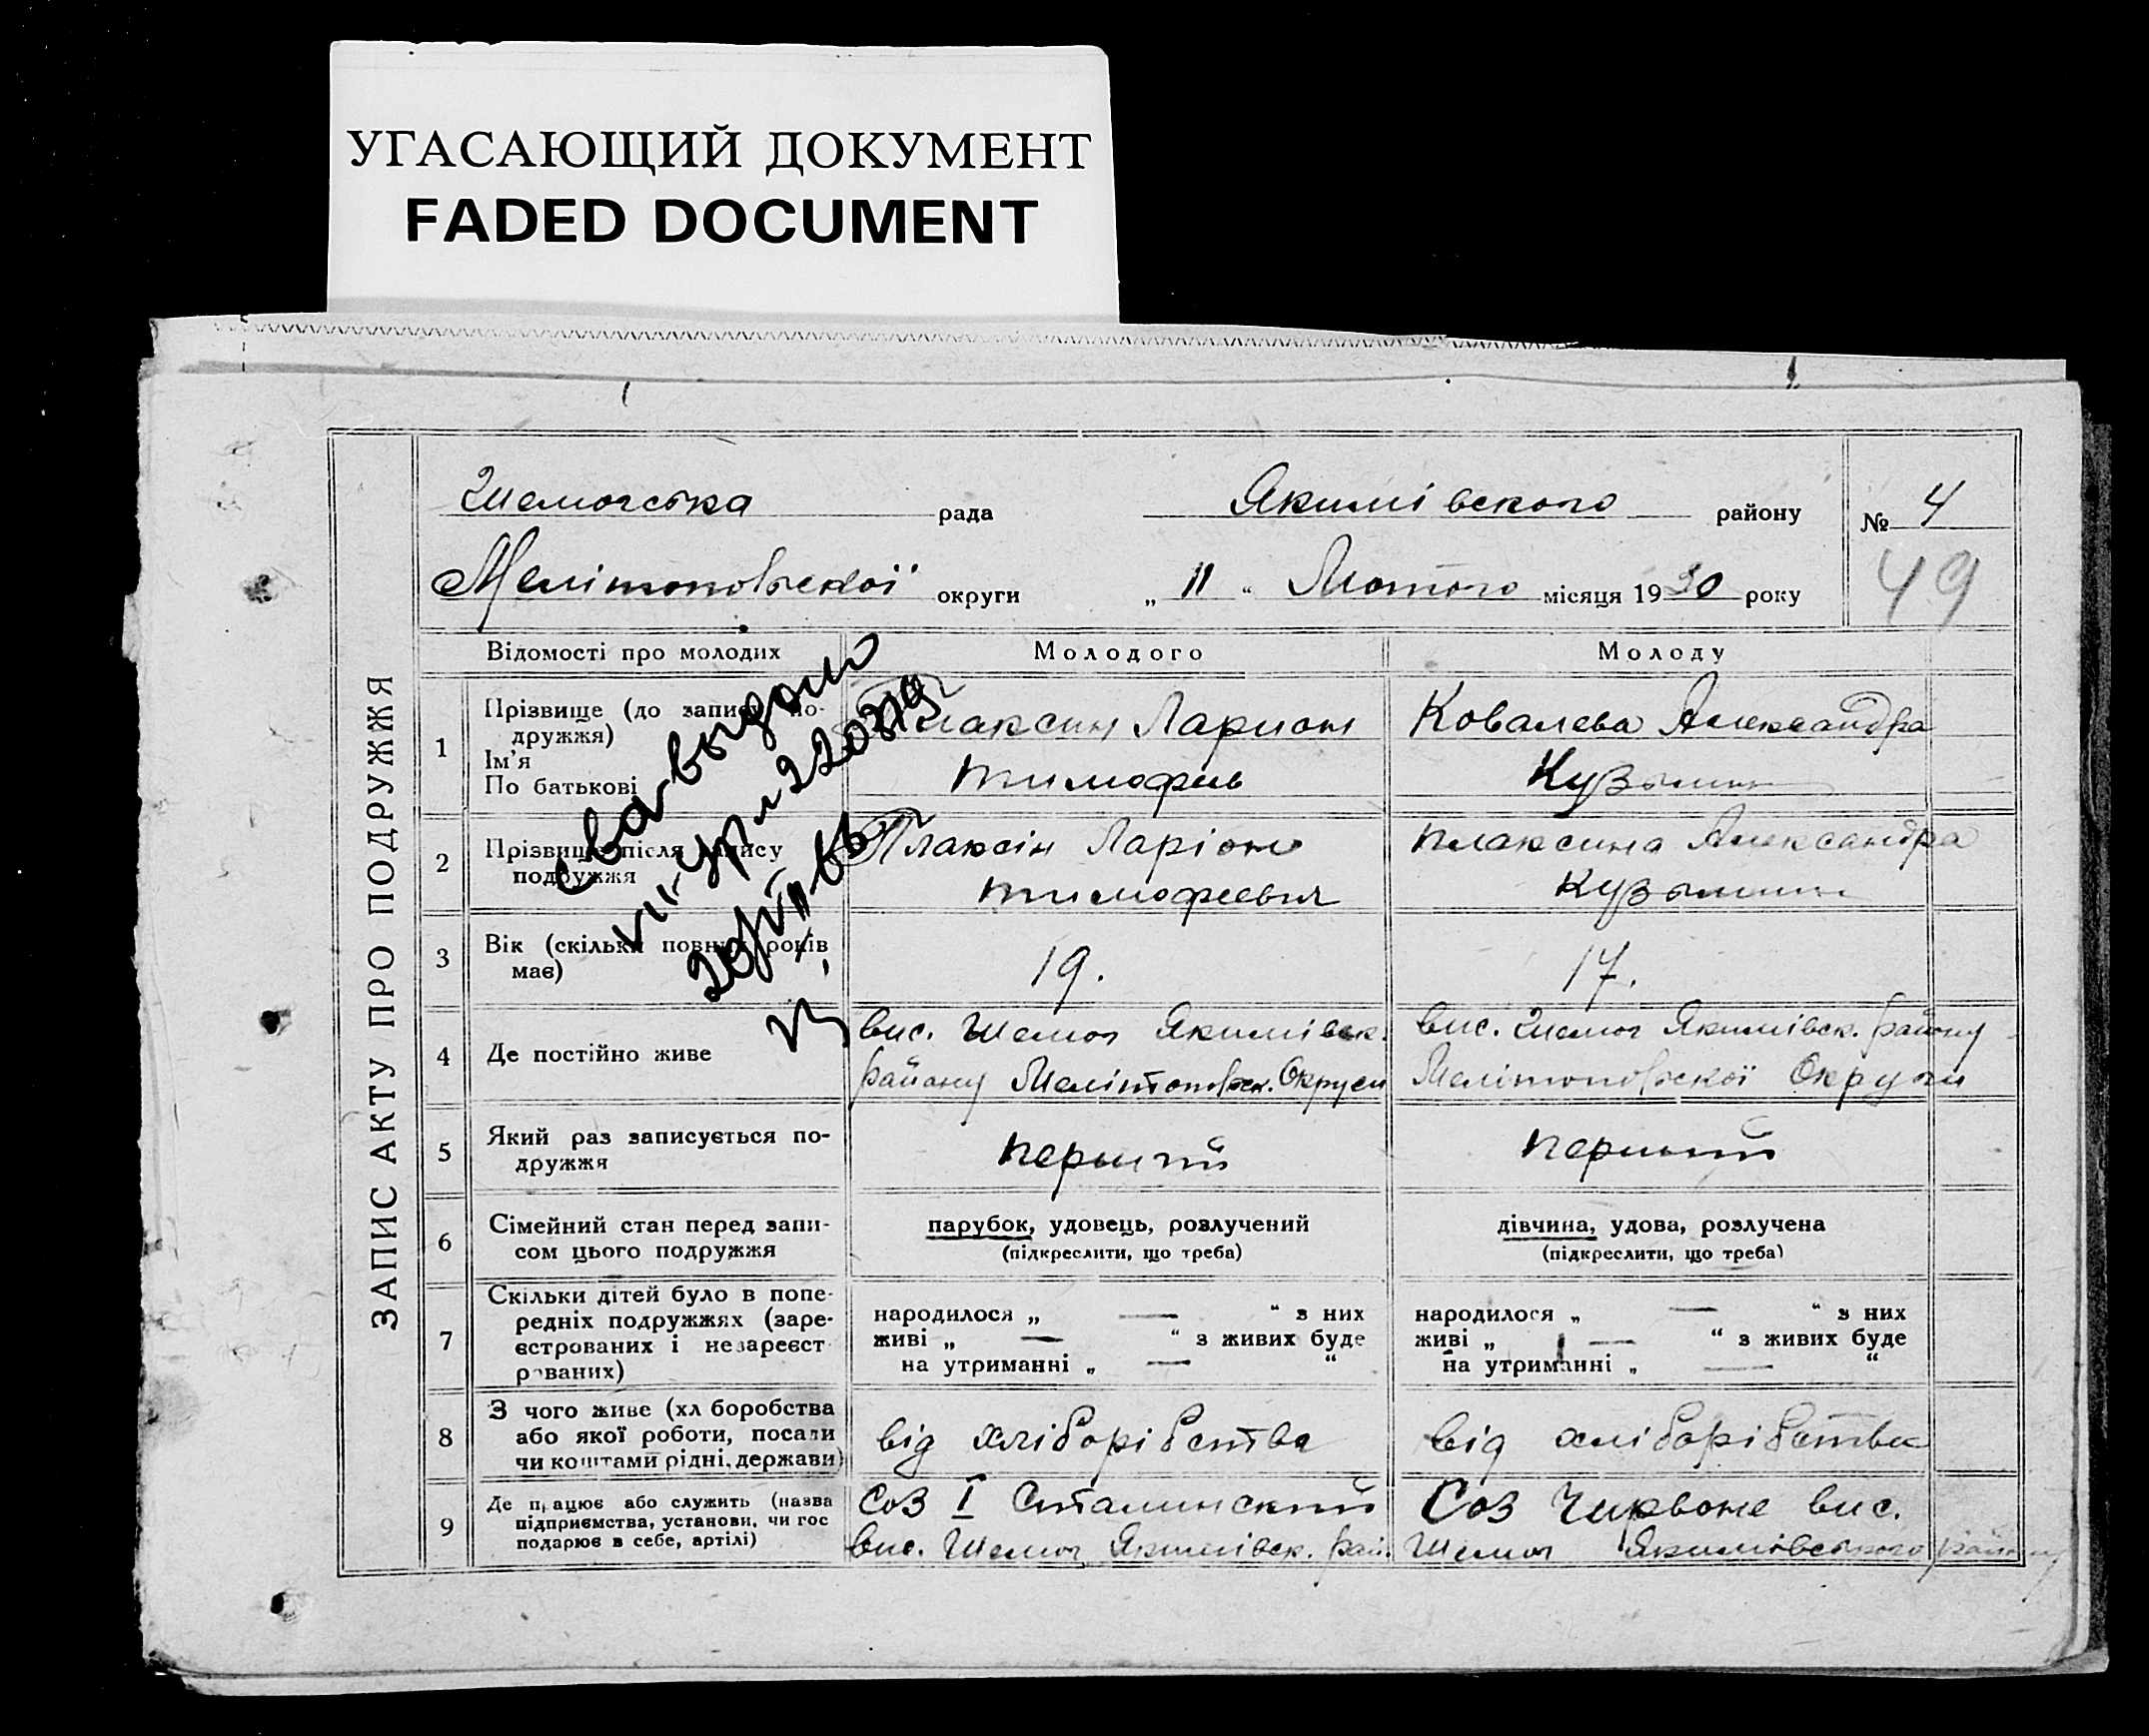 УГАСАЮЩИЙ ДОКУМЕНТ
FADED DOCUMENT
ЗАПИС АКТУ ПРО ПОДРУЖЖЯ
рада Якимівского району № 4
Мелітопольскої округи „ 11 “ Лютого місяця 1930 року 49
Відомості про молодих Молодого Молоду
1 Прізвище (до запису по-
дружжя)
Ім'я
По батькові
Плаксин Ларион
Тимофеев
Ковалева Александра
2 Прізвище після запису
подружжя
Плаксін Ларіон
Тимофеевич
Плаксина Александра
3 Вік (скільки повних років
має)
19.
17.
4 Де постійно живе
вис. Якимівск.
району Мелітопольск. Округи
вис. Якимівск. району
Мелітопольскої Округи
5 Який раз записується по-
дружжя
перший
перший
6 Сімейний стан перед запи-
сом цього подружжя
парубок, удовець, розлучений
(підкреслити, що треба)
дівчина, удова, розлучена
(підкреслити, що треба)
7 Скільки дітей було в попе-
редніх подружжях (заре-
єстрованих і незареєст
рованих)
народилося „ — “ з них
живі „ — “ з живих буде
на утриманні „ — “
народилося „ — “ з них
живі „ — “ з живих буде
на утриманні „ — “
8 З чого живе (хліборобства
або якої роботи, посади
чи коштами рідні, держави)
від хліборібства
від хліборібства
9 Де працює або служить (назва
підприємства, установи, чи гос
подарює в себе, артілі)
Соз I Сталинский
вис. Якимівск. рай.
Соз Червоне вис.
Якимівского району